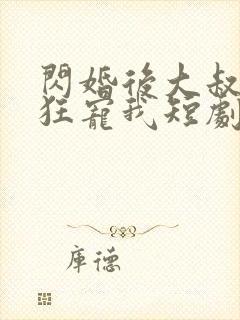 閃婚後大叔
狂寵我短劇
庫德